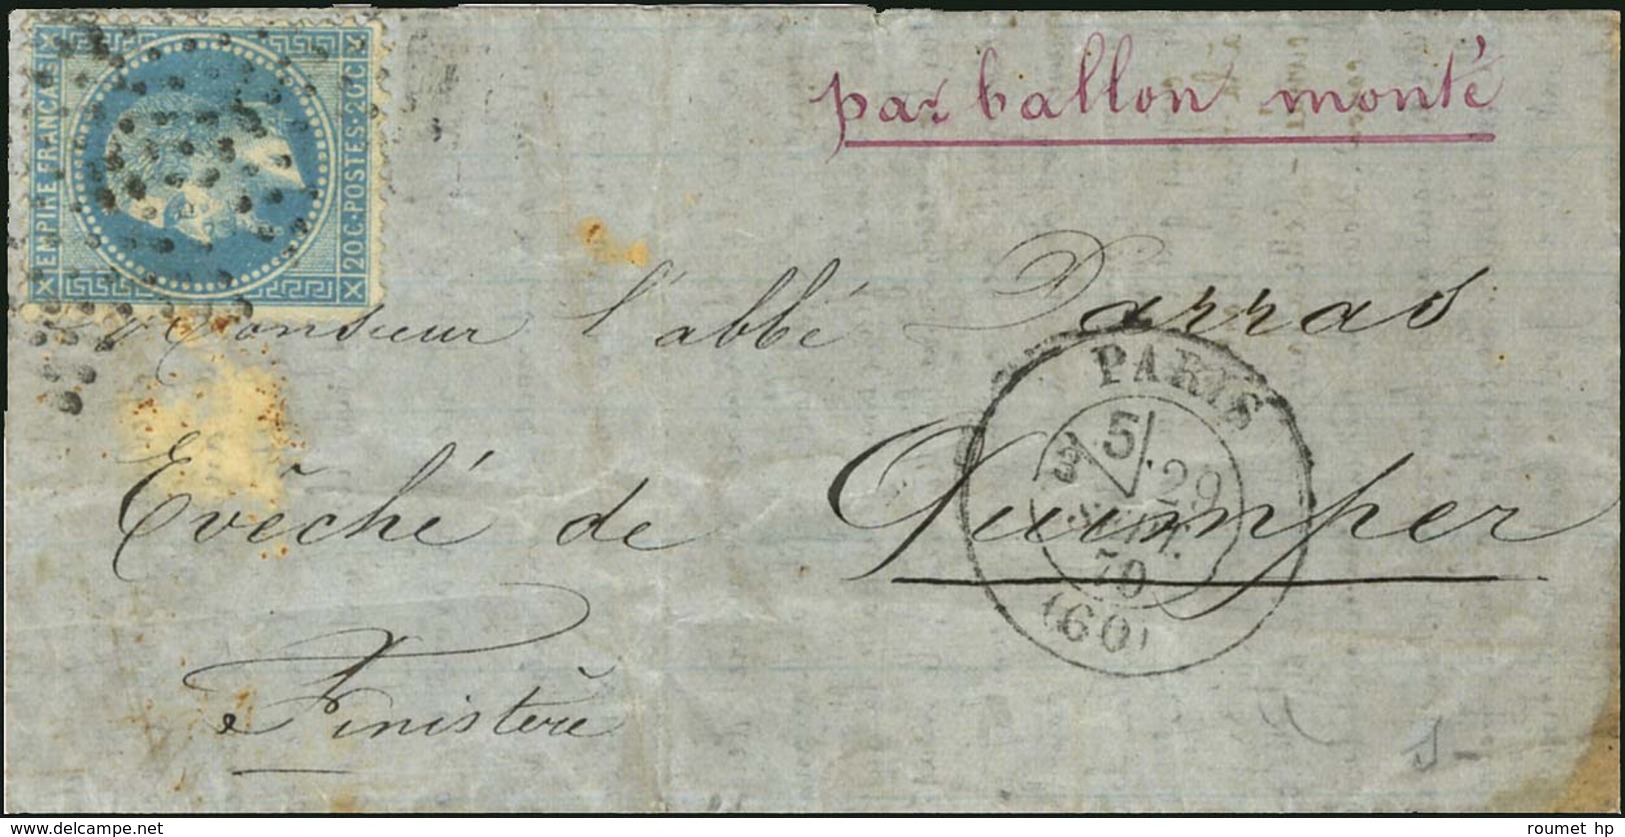 EMPIRE FRANCAIS
20C·POSTES·20C
par ballon monté
Monsieur l'abbé Darras
Evêché de Quimper
Finistère
PARIS
5
29
SEPT.
70
(60)
delcampe.net
roumet hp